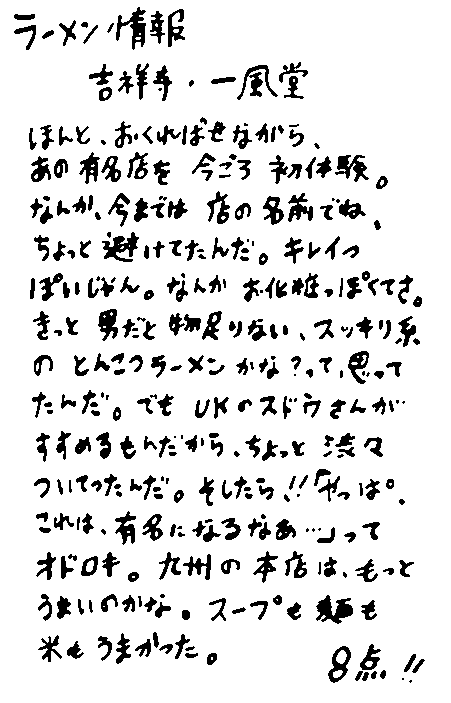 ラーメン情報
吉祥寺・一風堂
ほんと、おくればせながら、
あの有名店を今ごろ初体験。
なんか、今までは店の名前でね、
ちょっと避けてたんだ。キレイっ
ぽいじゃん。なんかお化粧っぽくてさ。
きっと男だと物足りない、スッキリ系
のとんこつラーメンかな?って、思って
たんだ。でもUKのスドウさんが
すすめるもんだから、ちょっと渋々
ついてったんだ。そしたら、!!「やっぱ、
これは、有名になるなあ…」って
オドロキ。九州の本店は、もっと
うまいのかな。スープも麺も
米もうまかった。
8点!!